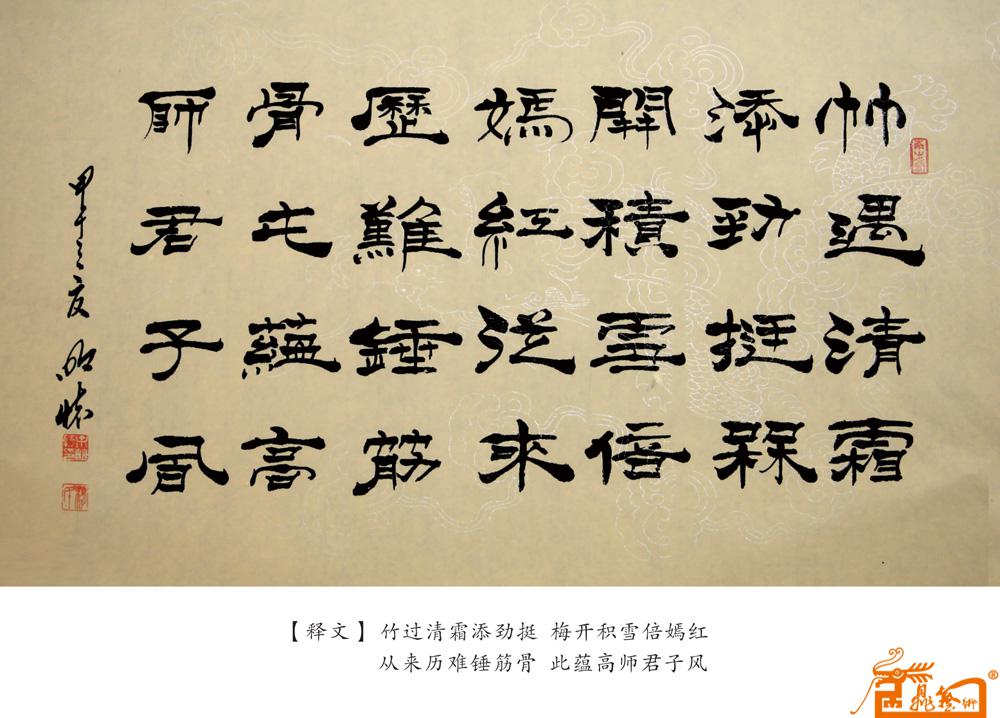 竹遇清霜
添勁挺槑
開積雪倍
嫣紅從來
歷難錘筋
骨此蘊高
師君子風
甲午之夏
【释文】竹过清霜添劲挺 梅开积雪倍嫣红
从来历难锤筋骨 此蕴高师君子风
®